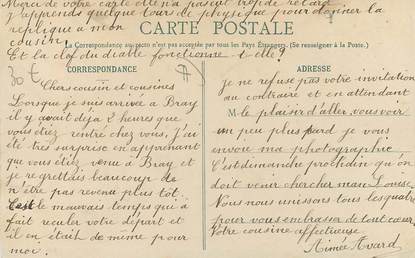 Merci de votre carte elle n'a pas eut trop de retard
j'apprends quelque tours de physique pour donner la
réplique a mon
cousin
CARTE POSTALE
La Correspondance au recto n'est pas acceptée par tous les Pays Étrangers. (Se renseigner à la Poste.)
Et la clef du diable fonctionne t-elle?
CORRESPONDANCE
30 €
Chers cousin et cousines
Lorsque je suis arrivée a Bray
il y avait déjà 2 heures que
vous étiez rentré chez vous, j'ai
été très surprise en apprenant
que vous étiez venue a Bray et
je regrettais beaucoup de
n'être pas revenue plus tôt.
C'est le mauvais temps qui a
fait reculer votre départ et
il en était de même pour
moi.
ADRESSE
je ne refuse pas votre invitation
au contraire et en attendant
M le plaisir d'aller vous voir
un peu plus tard je vous
envoie ma photographie
C'est dimanche prochain qu'on
doit venir chercher man Louise.
Nous nous unissons tous les quatre
pour vous embrasser de tout cœur.
Votre cousine affectueuse
Aimée Avard